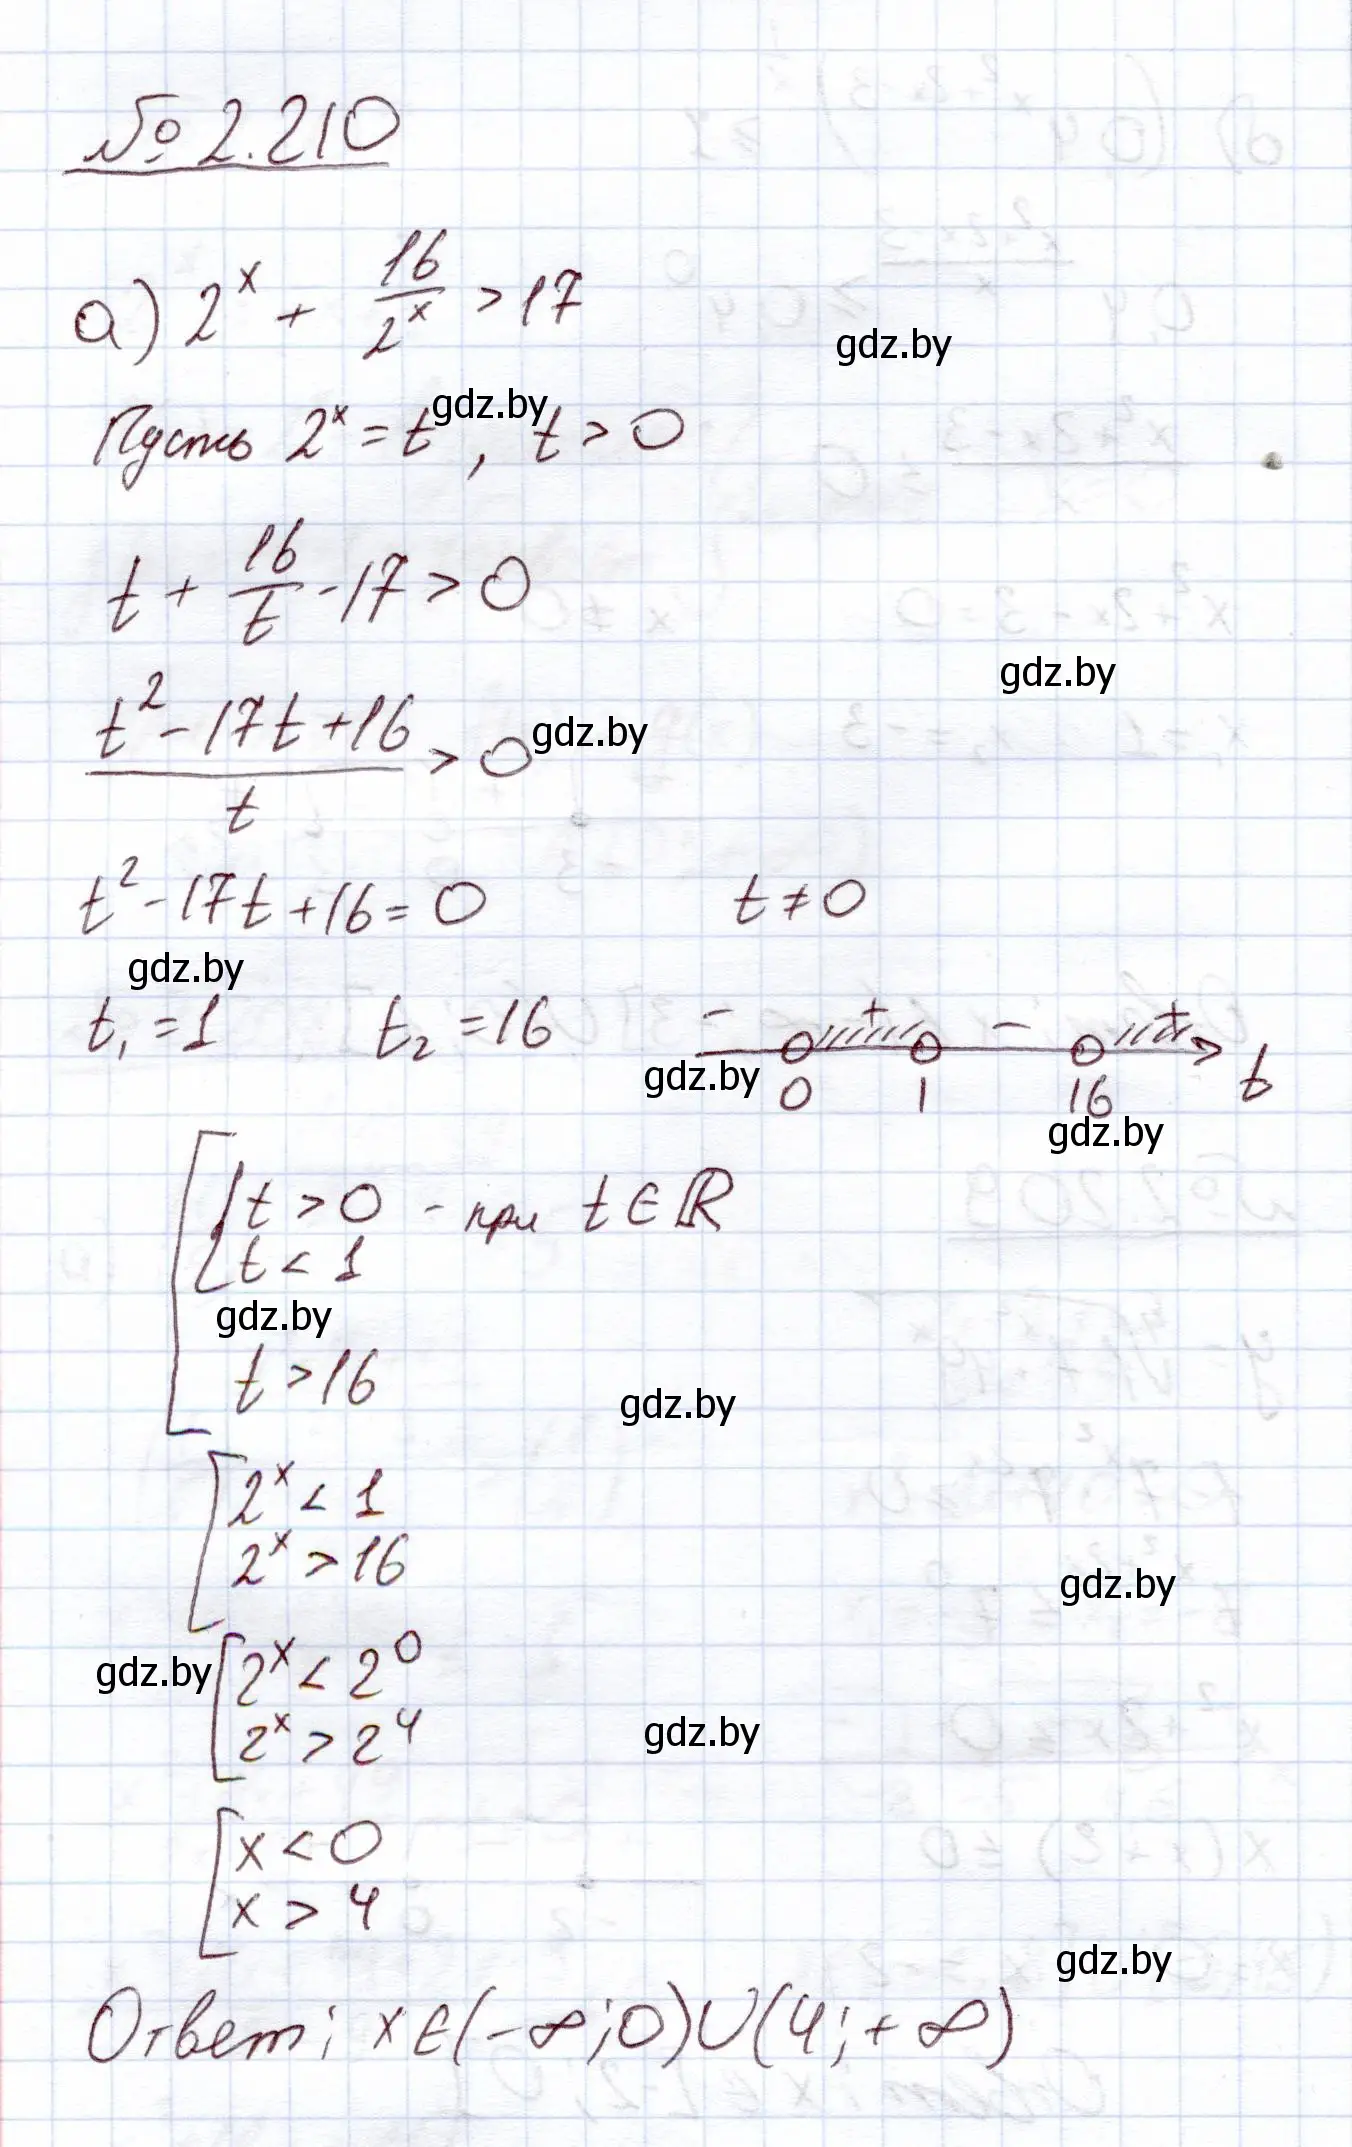 № 2.210
а) 2^x + 16/2^x > 17
gdz.by
Пусть 2^x = t, t > 0
gdz.by
t + 16/t - 17 > 0
gdz.by
(t^2 - 17t + 16)/t > 0
gdz.by
t^2 - 17t + 16 = 0 t ≠ 0
gdz.by
t₁ = 1 t₂ = 16 - + - +
gdz.by 0 1 16 t
gdz.by
{ t > 0 - при t ∈ ℝ
t < 1
gdz.by
t > 16
gdz.by
[ 2^x < 1
2^x > 16
gdz.by
gdz.by [ 2^x < 2^0
2^x > 2^4
gdz.by
[ x < 0
x > 4
gdz.by
Ответ: x ∈ (-∞; 0) ∪ (4; +∞)